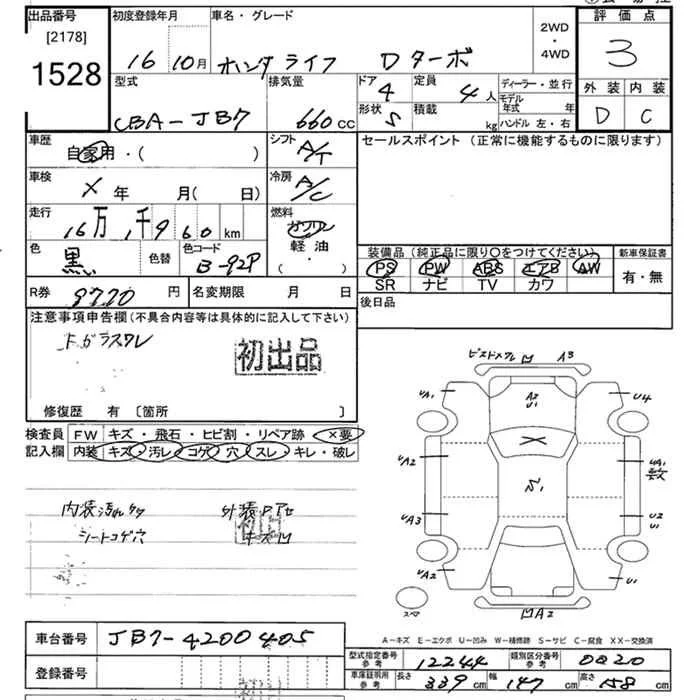 出品番号
[2178]
1528
初度登録年月
16 10月
車名・グレード
ホンダ ライフ Dターボ
2WD
・
4WD
評価点
3
外装 内装
D C
型式
CBA-JB7
排気量
660cc
ドア
4
定員
4人
形状
5
積載
kg
ディーラー・並行
モデル年式 年
ハンドル 左・右
車歴
自家用・( )
シフト
A/T
セールスポイント (正常に機能するものに限ります)
車検
X 年 月( 日)
冷房
A/C
走行
16万 1千960km
燃料
ガソリン
軽油
( ・ )
色
黒
色替
色コード
B-92P
装備品 (純正品に限り〇をつけてください)
PS PW ABS エアB AW
SR ナビ TV カワ
新車保証書
有・無
R券
9770円
名変期限 月 日
後日品
注意事項申告欄(不具合内容等は具体的に記入して下さい)
Fガラスワレ
初出品
修復歴 有 [箇所 ]
検査員
記入欄
FW キズ・飛石・ヒビ割・リペア跡 ×要
内装 キズ・汚レ・コゲ・穴・スレ・キレ・破レ
内装汚れ
シートコゲ穴
外装
キズ凹
凹 A3
UA1
A2
U1
U4
UA2
UA1
S1
UA3
U2
U1
UA2
U1
凹A2
スペア
A-キズ E-エクボ U-凹み W-補修跡 S-サビ C-腐食 XX-交換済
車台番号
JB7-4200405
登録番号
型式指定番号
参考
12244
類別区分番号
参考
0020
車庫証明用
参考
長さ 339cm
幅 147cm
高さ 158cm